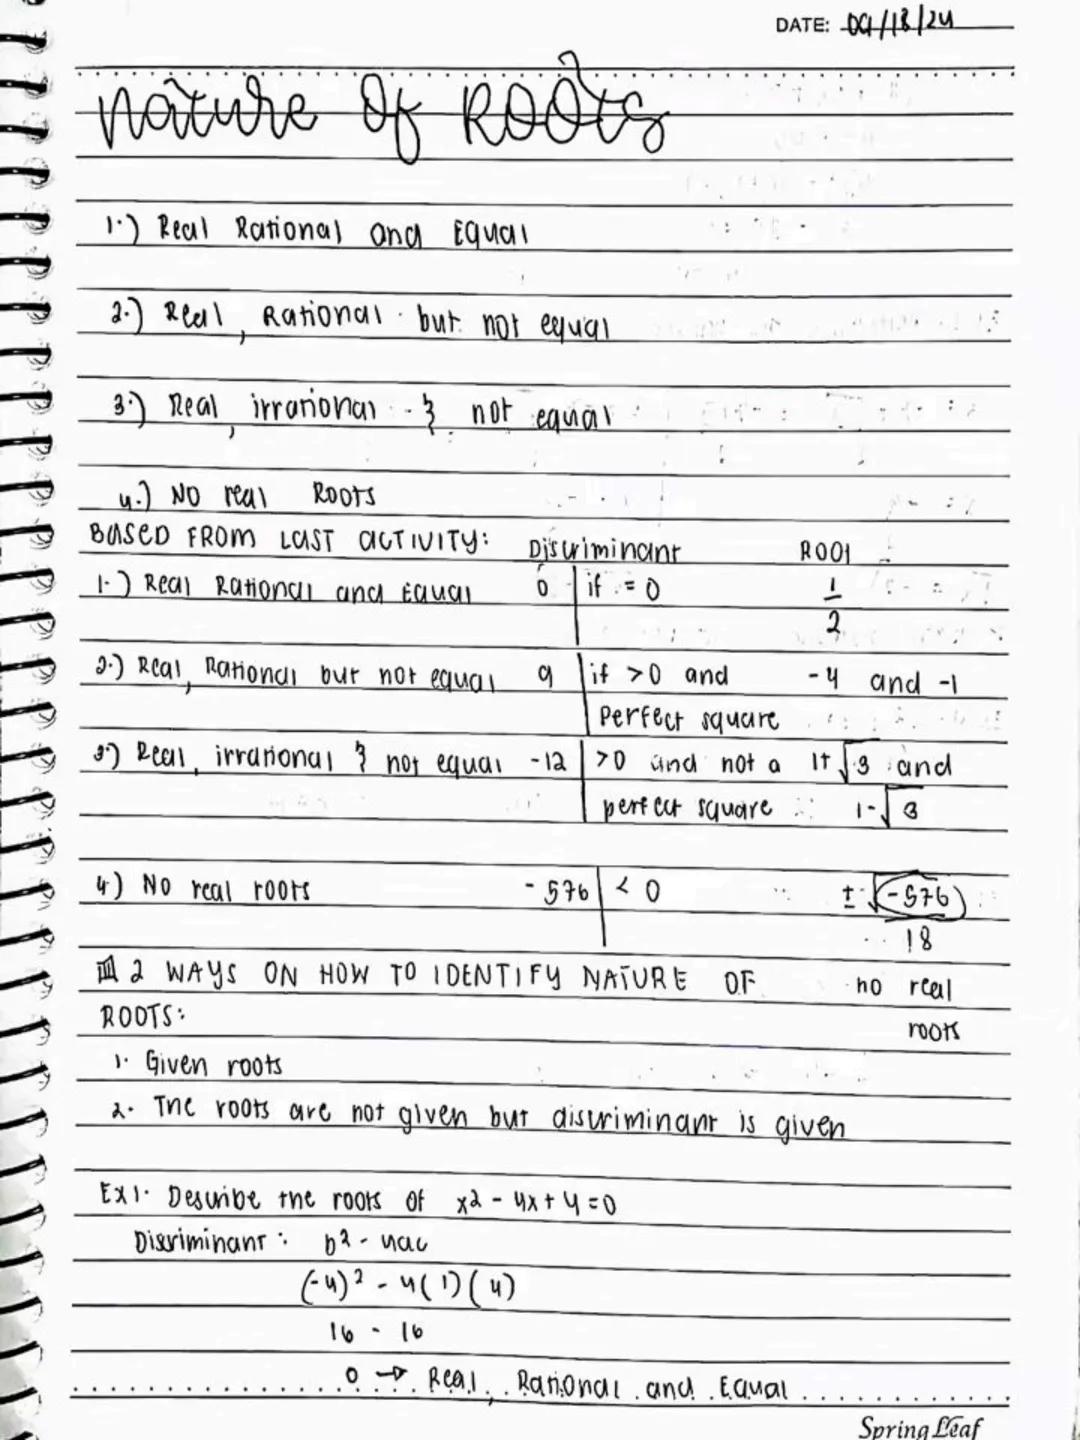 DATE: 09/18/24
Nature of Roots
1.) Real Rational and Equal
2.) Real, Rational but not equal
3.) Real, irrational & not equal
4.) No real Roots
BASED FROM LAST ACTIVITY: Discriminant ROOT
1.) Real Rational and Equal 0 if = 0 1
2
2.) Real, Rational but not equal 9 if >0 and -4 and -1
Perfect square
3.) Real, irrational & not equal -12 >0 and not a 1+√3 and
perfect square 1-√3
4.) No real roots -576 < 0 ±√-576
18
2 WAYS ON HOW TO IDENTIFY NATURE OF no real
ROOTS: roots
1. Given roots
2. The roots are not given but discriminant is given
Ex1. Describe the roots of x2 - 4x + 4 = 0
Discriminant : b2 - 4ac
(-4)2 - 4(1)(4)
16 - 16
0 → Real, Rational and Equal
Spring Leaf